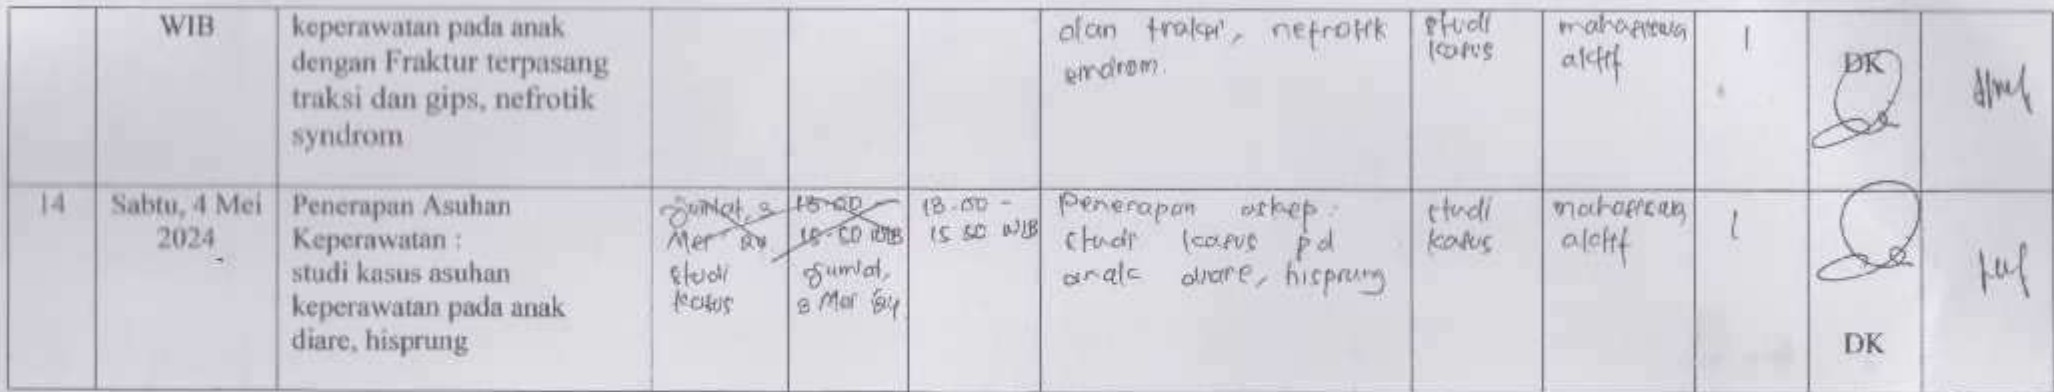 WIB
keperawatan pada anak
dengan Fraktur terpasang
traksi dan gips, nefrotik
syndrom
dan traksi, nefrotik
sindrom.
studi
kasus
mahasiswa
aktif
1
DK
14
Sabtu, 4 Mei
2024
Penerapan Asuhan
Keperawatan :
studi kasus asuhan
keperawatan pada anak
diare, hisprung
studi
kasus
Jumlat,
13.00 -
15 50 WIB
Penerapan askep :
studi kasus pd
anak diare, hisprung
studi
kasus
mahasiswa
aktif
1
DK